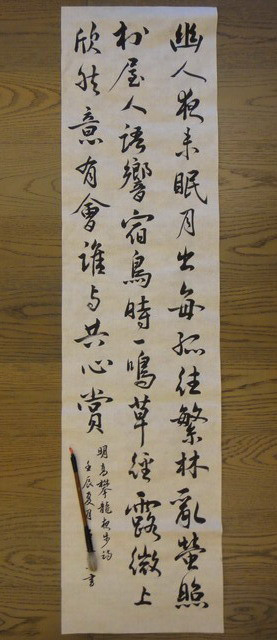 幽人夜未眠月出每孤往繁林亂螢照
村屋人語響宿鳥時一鳴草徑露微上
欣然意有會誰与共心賞
明高攀龍夜步詩
壬辰夏月
書